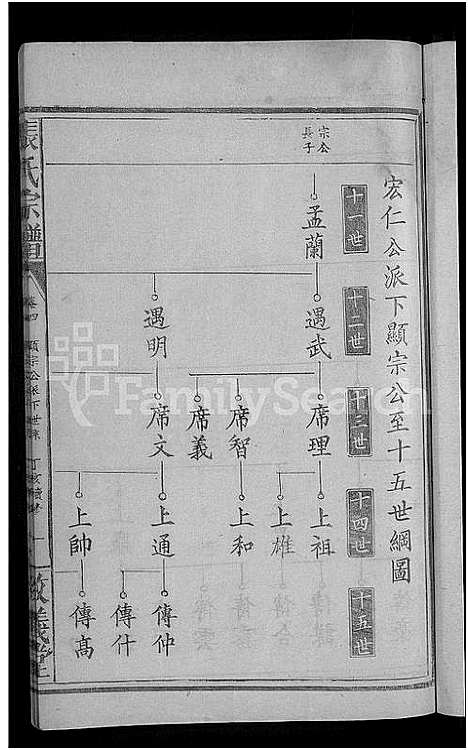 宏仁公派下顯宗公至十五世綱圖
十一世
十二世
十三世
十四世
十五世
宗公
長子
孟蘭
遇武
遇明
席理
席智
席義
席文
上祖
上雄
上和
上通
上帥
傳仲
傳什
傳高
張氏宗譜
卷四
顯宗公派下世系
丁亥續修
一
敦義堂
FamilySearch